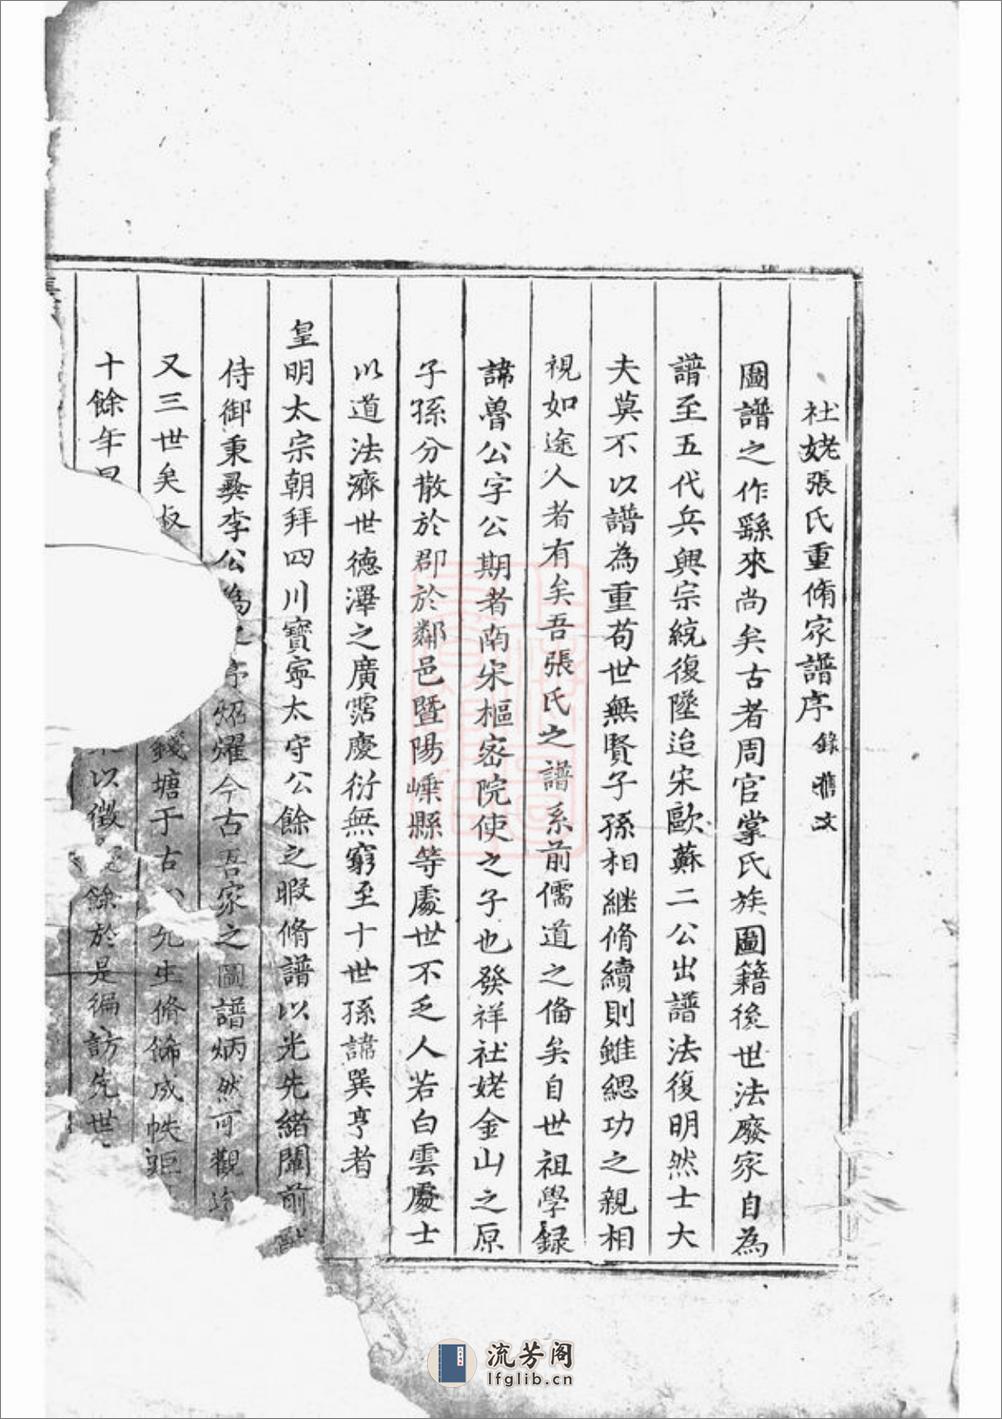 社姥張氏重脩家譜序錄舊文
圖譜之作繇來尚矣古者周官掌氏族圖籍後世法廢家自為
譜至五代兵興宗統復墜迨宋歐蘇二公出譜法復明然士大
夫莫不以譜為重苟世無賢子孫相繼脩續則雖緦功之親相
視如途人者有矣吾張氏之譜系前儒道之備矣自世祖學録
諱曾公字公期者南宋樞密院使之子也發祥社姥金山之原
子孫分散於郡於鄰邑暨陽嵊縣等處世不乏人若白雲處士
以道法濟世德澤之廣霑慶衍無窮至十世孫諱巽亨者
皇明太宗朝拜四川寶寧太守公餘之暇脩譜以光先緒闡前
侍御秉彝李公為之序炤耀今古吾家之圖譜炳然可觀迨
又三世矣板錢塘于古先生脩俻成帙距
十餘年以徵餘於是徧訪先世
流芳阁
lfglib.cn